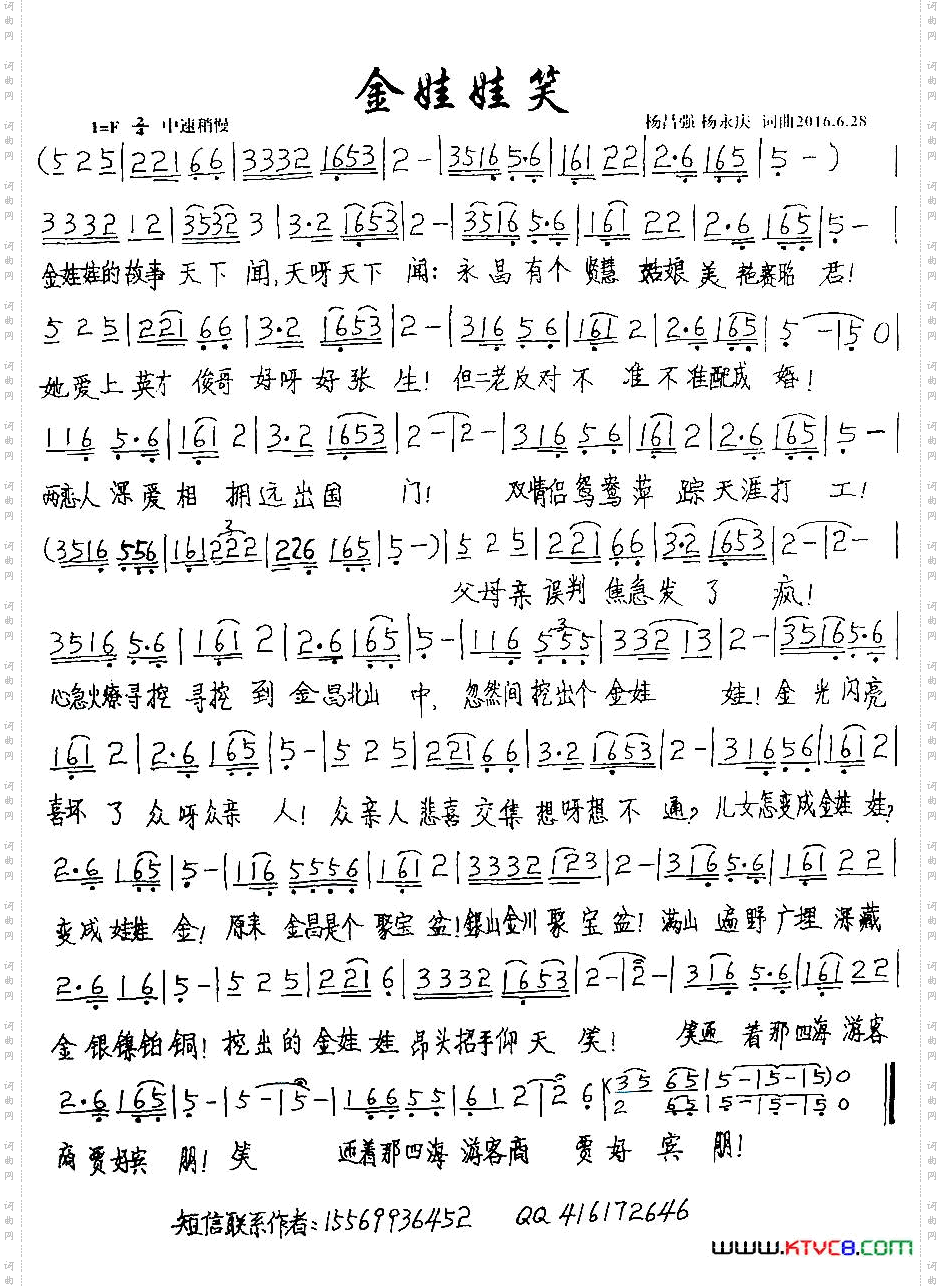 金娃娃笑
1=F 2/4 中速稍慢 杨昌强 杨永庆 词曲2016.6.28
(5 2 5|2 2 1 6 6|3 3 3 2 1 6 5 3|2 -|3 5 1 6 5·6|1 6 1 2 2|2·6 1 6 5|5 -)|
3 3 3 2 1 2|3 5 3 2 3|3·2 1 6 5 3|2 -|3 5 1 6 5·6|1 6 1 2 2|2·6 1 6 5|5 -|
金娃娃的故事 天下 闻,天呀天下 闻:永昌有个 贤慧 姑娘美 艳赛昭 君!
5 2 5|2 2 1 6 6|3·2 1 6 5 3|2 -|3 1 6 5 6|1 6 1 2|2·6 1 6 5|5 -|5 0
她爱上英才 俊哥 好呀好张 生!但二老反对不 准不准配成 婚!
1 1 6 5·6|1 6 1 2|3·2 1 6 5 3|2 -|2 -|3 1 6 5 6|1 6 1 2|2·6 1 6 5|5 -
两恋人深爱相 拥远出国 门! 双情侣鸳鸯萍 踪天涯打 工!
(3 5 1 6 5 5 6|1 6 1 2 2 2|2 2 6 1 6 5|5 -)|5 2 5|2 2 1 6 6|3·2 1 6 5 3|2 -|2 -|
父母亲 误判 焦急发 了 疯!
3 5 1 6 5·6|1 6 1 2|2·6 1 6 5|5 -|1 1 6 5 5 5|3 3 2 1 3|2 -|3 5 1 6 5·6|
心急火燎寻挖 寻挖 到 金昌北山 中, 忽然间挖出个金娃 娃!金光闪亮
1 6 1 2|2·6 1 6 5|5 -|5 2 5|2 2 1 6 6|3·2 1 6 5 3|2 -|3 1 6 5 6|1 6 1 2|
喜坏 了 众呀众亲 人! 众亲人悲喜交集 想呀想不 通?儿女怎变成金娃 娃?
2·6 1 6 5|5 -|1 1 6 5 5 5 6|1 6 1 2|3 3 3 2 1 2 3|2 -|3 1 6 5·6|1 6 1 2 2|
变成娃娃 金!原来 金昌是个 聚宝 盆!银山金川聚 宝盆!满山 遍野广埋 深藏
2·6 1 6|5 -|5 2 5|2 2 1 6|3 3 3 2 1 6 5 3|2 -|2 -|3 1 6 5·6|1 6 1 2 2|
金银镍铂铜!挖出的金娃娃 昂头招手仰天 笑! 笑迎 着那四海 游客
2·6 1 6 5|5 -|5 -|5 -|1 6 6 5 5|6 1 2|2 6|3 5 6 5|5 -|5 -|5 0
2 6 5|5 -|5 -|5 0
商贾好宾 朋!笑 迎着那四海 游客商 贾好 宾 朋!
短信联系作者:15569936452 QQ 416172646
www.KTVC8.com
词曲网